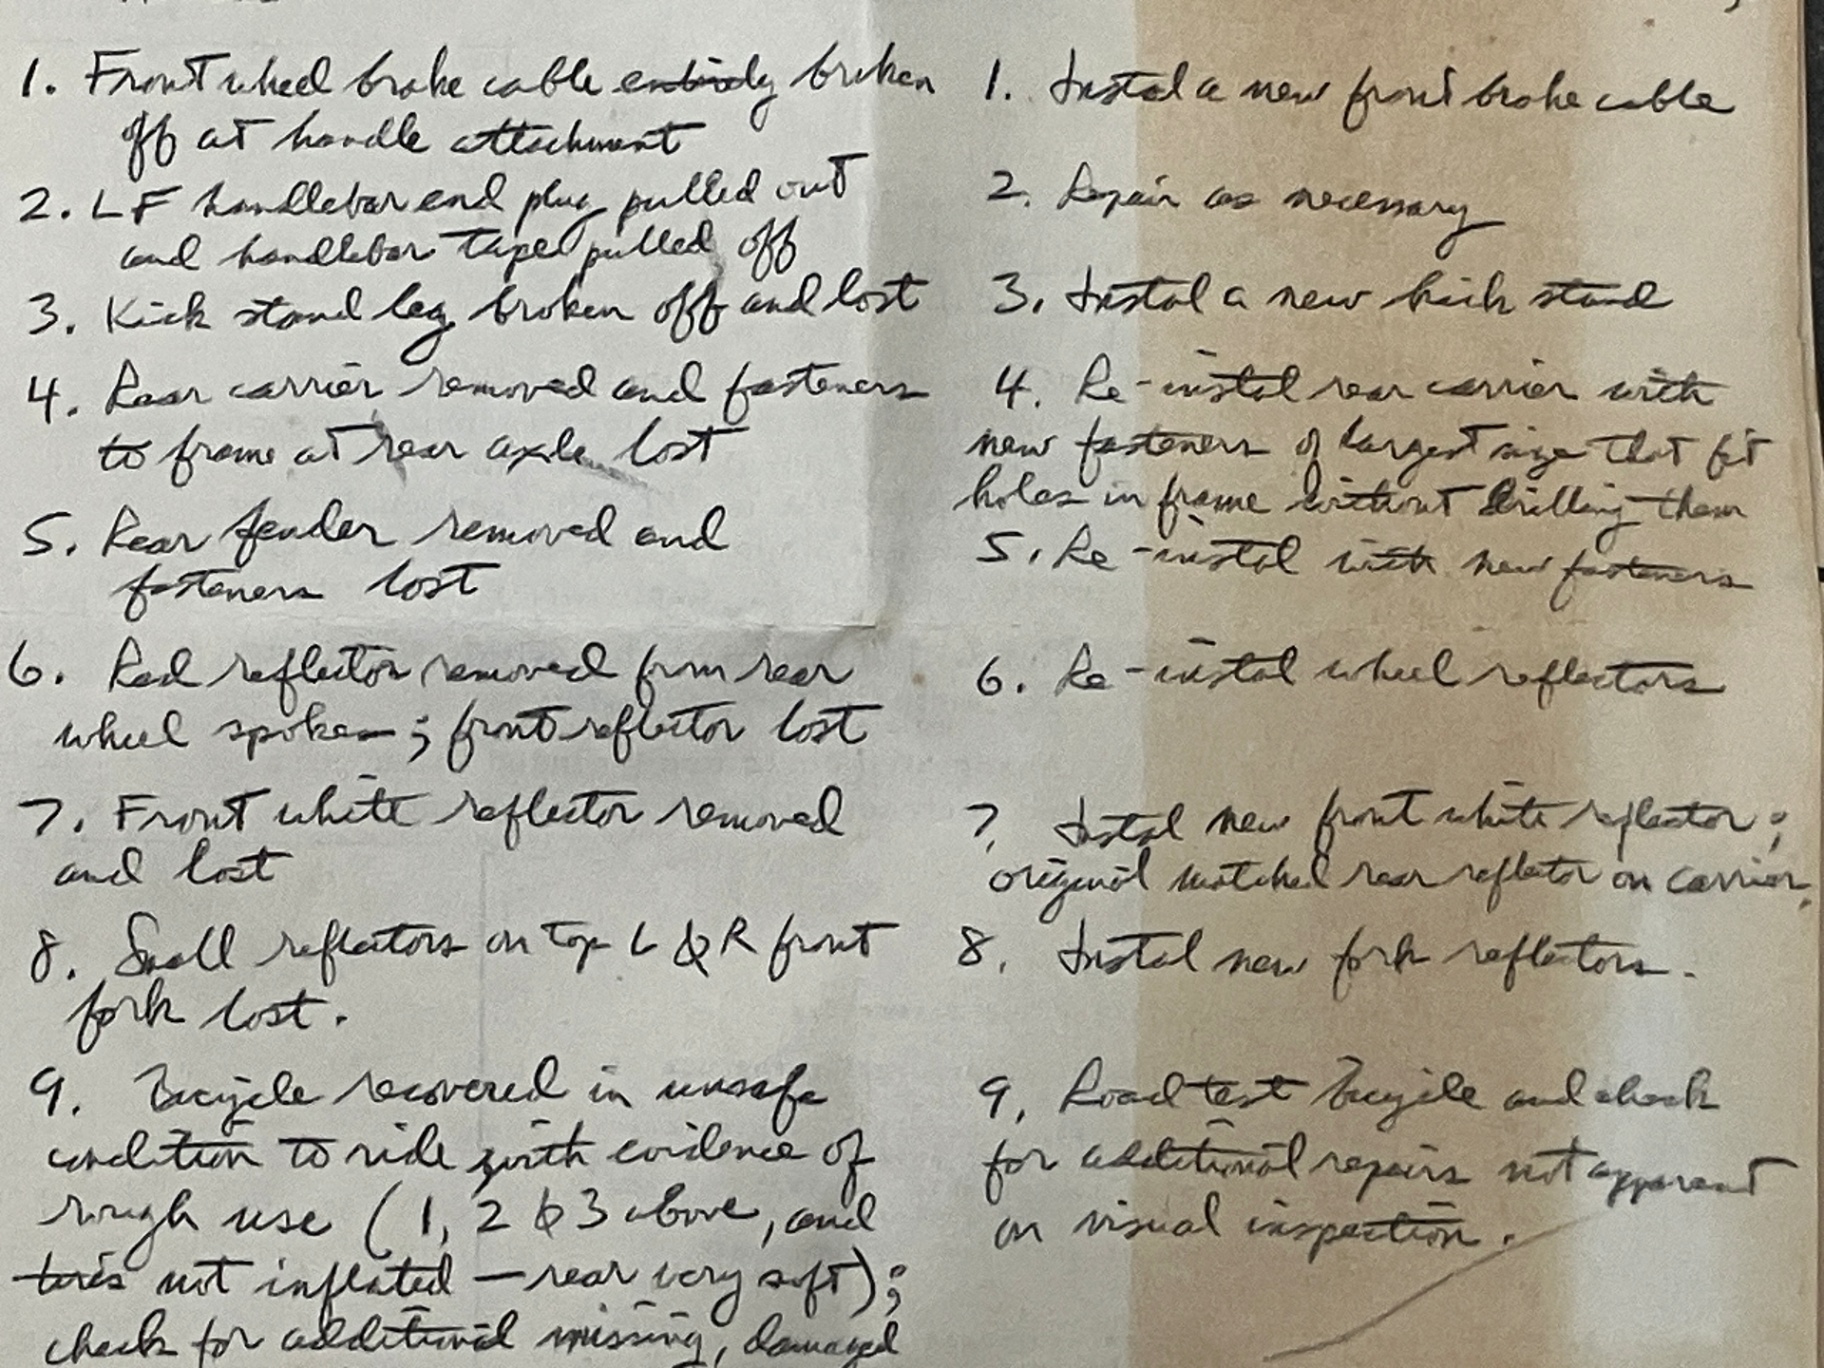 1. Front wheel brake cable entirely broken
off at handle attachment
2. LF handlebar end plug pulled out
and handlebar tape pulled off
3. Kick stand leg broken off and lost
4. Rear carrier removed and fasteners
to frame at rear axle lost
5. Rear fender removed and
fasteners lost
6. Red reflector removed from rear
wheel spokes; front reflector lost
7. Front white reflector removed
and lost
8. Small reflectors on top L & R front
fork lost.
9. Bicycle recovered in unsafe
condition to ride with evidence of
rough use (1, 2 & 3 above, and
tires not inflated — rear very soft);
check for additional missing, damaged
1. Instal a new front brake cable
2. Repair as necessary
3. Instal a new kick stand
4. Re-instal rear carrier with
new fasteners of largest size that fit
holes in frame without drilling them
5. Re-instal with new fasteners
6. Re-instal wheel reflectors
7. Instal new front white reflector;
original matched rear reflector on carrier.
8. Instal new fork reflectors.
9. Road test bicycle and check
for additional repairs not apparent
on visual inspection.